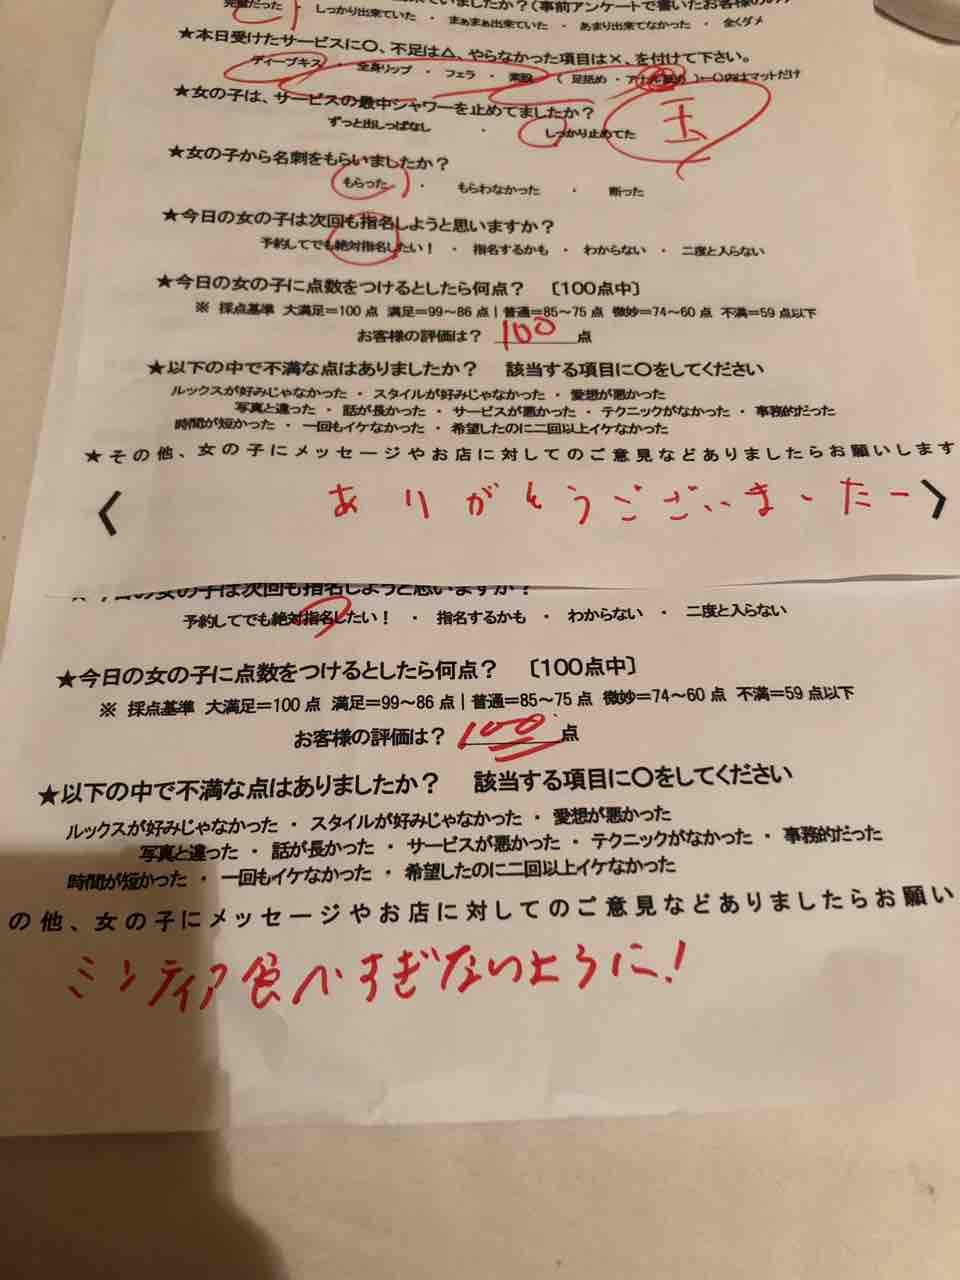 完璧だった ・ しっかり出来ていた ・ まぁまぁ出来ていた ・ あまり出来てなかった ・ 全くダメ
★本日受けたサービスに〇、不足は△、やらなかった項目は×、を付けて下さい。
ディープキス ・ 全身リップ ・ フェラ ・ 素股 ( 足舐め ・ アナル舐め )←()内はマットだけ
★女の子は、サービスの最中シャワーを止めてましたか?
ずっと出しっぱなし ・ しっかり止めてた
玉
★女の子から名刺をもらいましたか?
もらった ・ もらわなかった ・ 断った
★今日の女の子は次回も指名しようと思いますか?
予約してでも絶対指名したい! ・ 指名するかも ・ わからない ・ 二度と入らない
★今日の女の子に点数をつけるとしたら何点? 〔100点中〕
※ 採点基準 大満足=100 点 満足=99~86 点 | 普通=85~75 点 微妙=74~60 点 不満=59 点以下
お客様の評価は? 100 点
★以下の中で不満な点はありましたか? 該当する項目に〇をしてください
ルックスが好みじゃなかった ・ スタイルが好みじゃなかった ・ 愛想が悪かった
写真と違った ・ 話が長かった ・ サービスが悪かった ・ テクニックがなかった ・ 事務的だった
時間が短かった ・ 一回もイケなかった ・ 希望したのに二回以上イケなかった
★その他、女の子にメッセージやお店に対してのご意見などありましたらお願いします
〈 ありがとうございましたー 〉
★今日の女の子は次回も指名しようと思いますか?
予約してでも絶対指名したい! ・ 指名するかも ・ わからない ・ 二度と入らない
★今日の女の子に点数をつけるとしたら何点? 〔100点中〕
※ 採点基準 大満足=100 点 満足=99~86 点 | 普通=85~75 点 微妙=74~60 点 不満=59 点以下
お客様の評価は? 100 点
★以下の中で不満な点はありましたか? 該当する項目に〇をしてください
ルックスが好みじゃなかった ・ スタイルが好みじゃなかった ・ 愛想が悪かった
写真と違った ・ 話が長かった ・ サービスが悪かった ・ テクニックがなかった ・ 事務的だった
時間が短かった ・ 一回もイケなかった ・ 希望したのに二回以上イケなかった
の他、女の子にメッセージやお店に対してのご意見などありましたらお願い
ミンティア食べすぎないように!